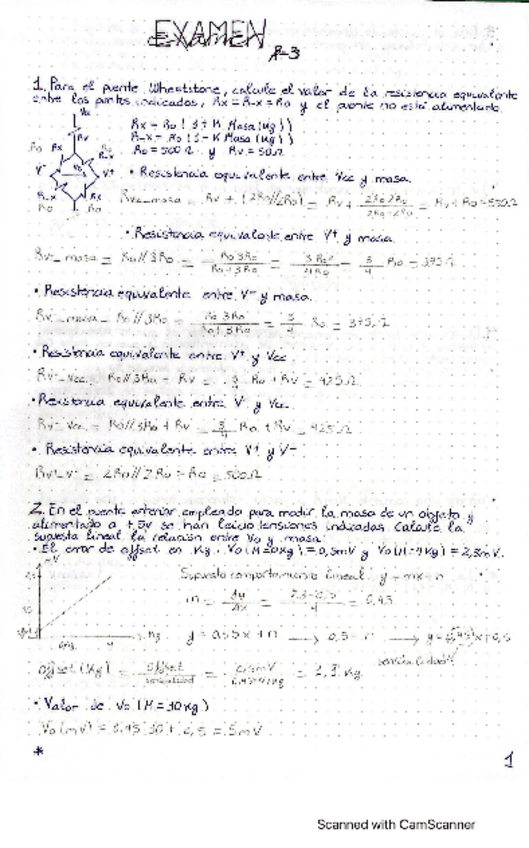 EXAMEN
A-3
1. Para el puente Wheatstone, calcule el valor de la resistencia equivalente
entre los puntos indicados, Rx = R-x = Ro y el puente no está alimentado.
Vcc
Rv
Rx = Ro (1 + K Masa (kg))
R-x = Ro (1 - K Masa (kg))
Ro = 500Ω y Rv = 50Ω
Ro Rx R-x Ro
V- Vo V+
R-x Rx
Ro Ro
• Resistencia equivalente entre Vcc y masa.
Rvcc-masa = Rv + (2Ro//2Ro) = Rv + 2Ro 2Ro / 2Ro+2Ro = Rv + Ro = 550Ω
• Resistencia equivalente entre V+ y masa.
Rv+-masa = Ro//3Ro = Ro 3Ro / Ro+3Ro = 3Ro² / 4Ro = 3/4 Ro = 375Ω
• Resistencia equivalente entre V- y masa.
Rv-masa = Ro//3Ro = Ro 3Ro / Ro+3Ro = 3/4 Ro = 375Ω
• Resistencia equivalente entre V+ y Vcc.
Rv+-vcc = Ro//3Ro + Rv = 3/4 Ro + Rv = 425Ω
• Resistencia equivalente entre V- y Vcc.
Rv--vcc = Ro//3Ro + Rv = 3/4 Ro + Rv = 425Ω
• Resistencia equivalente entre V+ y V-
Rv+-v- = 2Ro//2Ro = Ro = 500Ω
2. En el puente anterior, empleado para medir la masa de un objeto y
alimentado a +5v se han leido tensiones indicadas. Calcule la
supuesta lineal la relación entre Vo y masa:
• El error de offset en Kg. Vo (M=0kg) = 0,5mV y Vo (M=4kg) = 2,3mV.
mV
Supuesto comportamiento lineal: y = mx + n
m = Δy / Δx = 2,3-0,5 / 4 = 0,45
Kg
y = 0,45x + n → 0,5 = n → y = 0,45x + 0,5
sensibilidad
offset (Kg) = offset / sensibilidad = 0,5mV / 0,45mV/kg = 1,1 Kg
• Valor de Vo (M = 10kg)
Vo (mV) = 0,45·10 + 0,5 = 5mV
*
1
Scanned with CamScanner